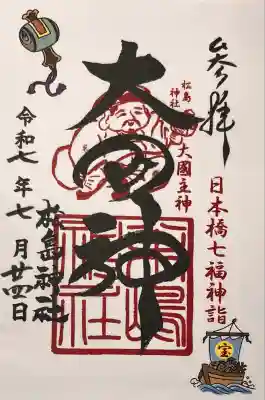 参拝
日本橋七福神詣
宝
松島
神社
大國主神
大国神
松島神社
令和七年七月廿四日
松島
神社